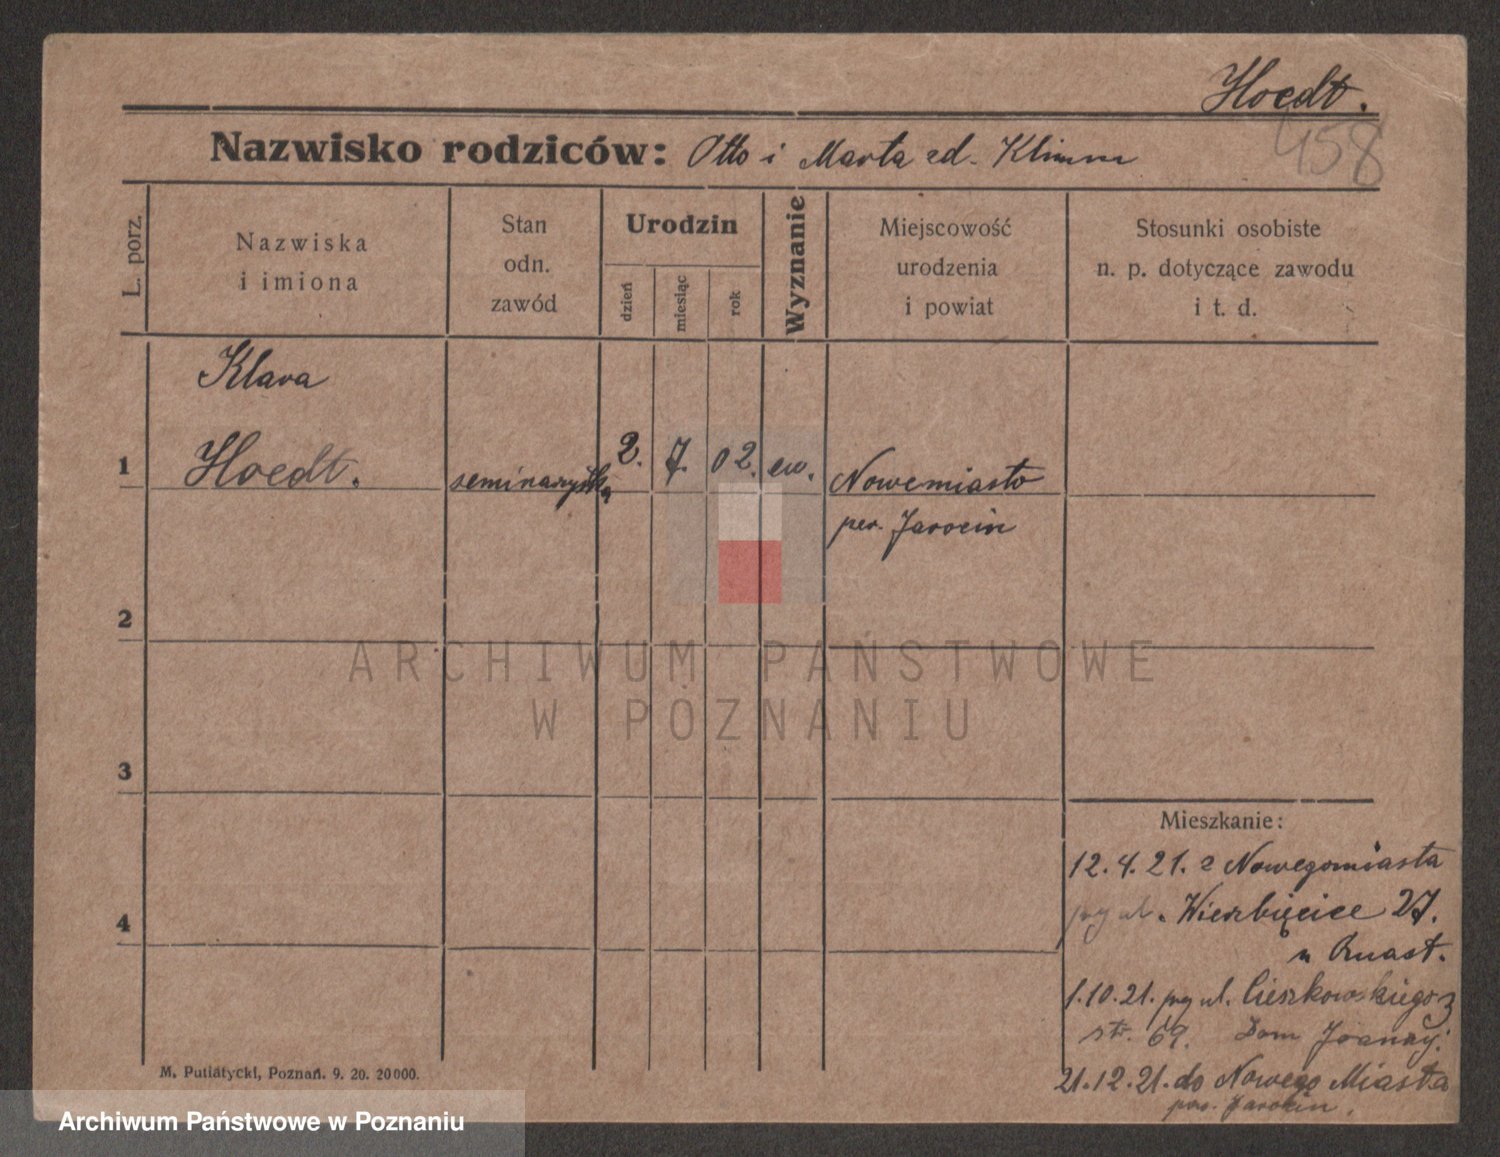 Hoedt.
458
Nazwisko rodziców: Otto i Marta zd. Klimm
L. porz.
Nazwiska
i imiona
Stan
odn.
zawód
Urodzin
dzień
miesiąc
rok
Wyznanie
Miejscowość
urodzenia
i powiat
Stosunki osobiste
n. p. dotyczące zawodu
i t. d.
Klara
1 Hoedt. seminarystka 2. 7. 02. ew. Nowemiasto
pow. Jarocin
2
3
4
ARCHIWUM PAŃSTWOWE
W POZNANIU
Mieszkanie:
12.4.21. z Nowegomiasta
przy ul. Wierzbięcice 27.
u
1.10.21. przy ul. Cieszkowskiego 3
str. 69. Dom Joanny.
21.12.21. do Nowego Miasta
pow. Jarocin.
M. Putiatycki, Poznań. 9. 20. 20000.
Archiwum Państwowe w Poznaniu